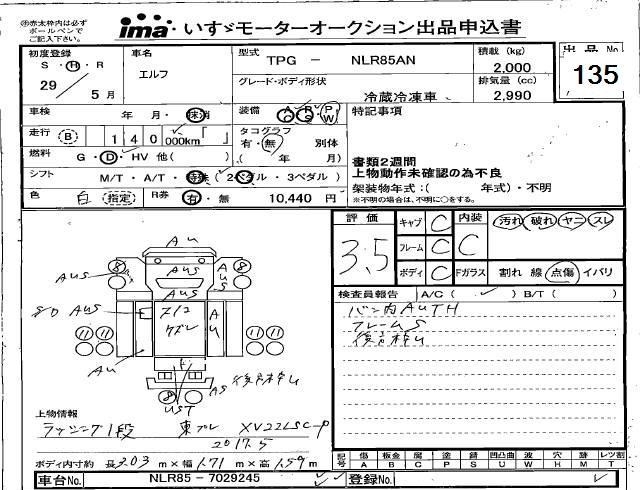 ㊟赤太枠内は必ず ボールペンで ご記入下さい。
ima いすゞモーターオークション出品申込書
初度登録 S・H・R 29 5月
車名 エルフ
型式 TPG - NLR85AN
積載 (kg) 2,000
出品 No 135
グレード・ボディ形状 冷蔵冷凍車
排気量 (cc) 2,990
車検 年 月・抹消
装備 A C・P S・P W
特記事項
走行 B 140 000km
タコグラフ 有・無 別体 ( 年 月)
燃料 G・D・HV 他( )
書類2週間
上物動作未確認の為不良
シフト M/T・A/T・特殊 (2ペダル・3ペダル)
架装物年式:( 年式)・不明
※不明の場合は、不明に○をする。
色 白 指定 R券 有・無 10,440 円
評価 3.5
キャブ C 内装 C
フレーム C
ボディ C Fガラス
汚れ 破れ ヤニ スレ
割れ 線 点傷 イバリ
検査員報告 A/C ( ✓ ) B/T ( )
バン内AUTH
フレームS
後戸枠U
AU
8 8
AUS AUS AUS
AUS
80 AUS
AU
11 11
AU
後戸枠U
8 AS
UST
上物情報
ラッシング1段 東プレ XV22LSC-P
2017.5
ボディ内寸約 長3.03 m×幅1.71 m×高1.59 m
記号 傷 A 板金 B 腐 C 塗 P 錆 S 凹凸曲 U 波 W 穴 H 跡 M レツ割 T
車台No. NLR85 - 7029245 登録No.